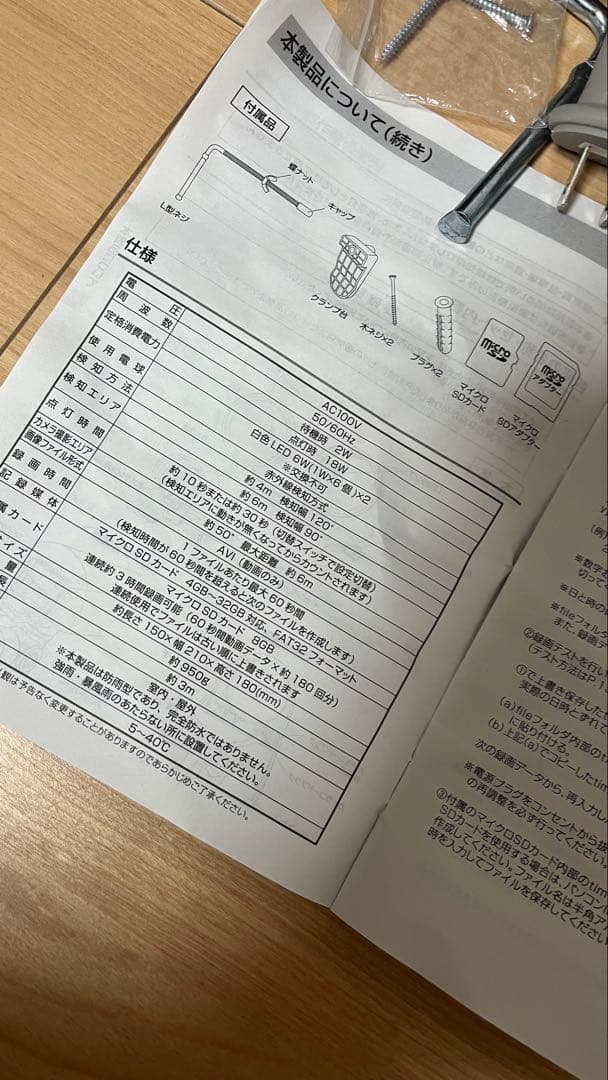 本製品について(続き)
付属品
蝶ナット
キャップ
L型ネジ
クランプ台
木ネジ×2
プラグ×2
micro SD
マイクロ
SDカード
micro SD
アダプター
マイクロ
SDアダプター
仕様
電 圧 AC100V
周 波 数 50/60Hz
定格消費電力 待機時 2W
点灯時 18W
使 用 電 球 白色 LED 6W(1W×6 個)×2
※交換不可
検 知 方 法 赤外線検知方式
検 知 エ リ ア 約 4m 検知幅 120°
約 6m 検知幅 90°
点 灯 時 間 約 10 秒または約 30 秒(切替スイッチで設定切替)
(検知エリアに動きが無くなってからカウントされます)
カメラ撮影エリア 約 50° 最大距離 約 6m
画像ファイル形式 AVI(動画のみ)
録 画 時 間 1 ファイルあたり最大 60 秒間
(検知時間が 60 秒間を超えると次のファイルを作成します)
記 録 媒 体 マイクロ SD カード 4GB~32GB 対応、FAT32 フォーマット
属カード マイクロ SD カード 8GB
連続約 3 時間録画可能(60 秒間動画データ×約 180 回分)
連続使用でファイルは古い順に上書きされます
イズ 約長さ 150×幅 210×高さ 180(mm)
量 約 950g
長 約 3m
室内・屋外
※本製品は防雨型であり、完全防水ではありません。
強雨・暴風雨のあたらない所に設置してください。
5~40℃
観は予告なく変更することがありますのであらかじめご了承ください。
(例)
※数字を
切って
※日と時の
※fileフォル
また、録画デ
②録画テストを行い
(テスト方法はP.1
①で上書き保存した
実際の日時とずれて
(a)fileフォルダ内部のtim
に貼り付ける。
(b)上記(a)でコピーしたtim
次の録画データから、再入力し
※電源プラグをコンセントから抜
の再調整を必ず行ってくださ
③付属のマイクロSDカード内部のtim
SDカードを使用する場合は、パソコン
作成してください。ファイル名は半角ア
時を入力してファイルを保存してくださ